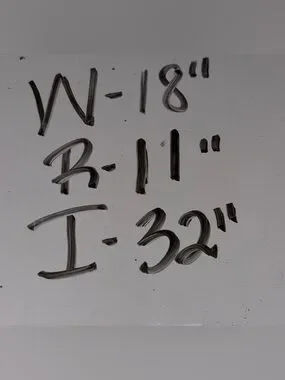 W-18"
R-11"
I-32"